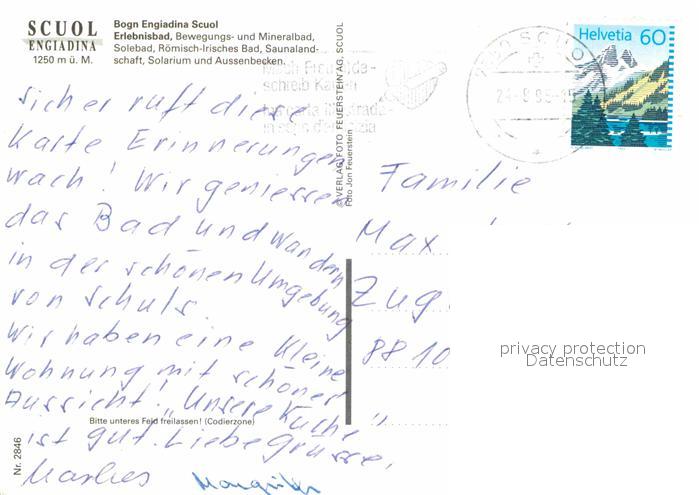 SCUOL
ENGIADINA
1250 m ü. M.
Bogn Engiadina Scuol
Erlebnisbad, Bewegungs- und Mineralbad,
Solebad, Römisch-Irisches Bad, Saunaland-
schaft, Solarium und Aussenbecken.
Helvetia 60
SCUOL
sicher ruft diese
Karte Erinnerungen
wach! Wir geniessen
das Bad und wandern
in der schönen Umgebung
von Schuls.
Wir haben eine kleine
Wohnung mit schöner
Aussicht! "Unsere Küche"
ist gut. Liebe Grüsse,
Marlies
© VERLAG FOTO FEUERSTEIN AG, SCUOL
Foto Jon Feuerstein
Familie
Max
Zug
8810
privacy protection
Datenschutz
Bitte unteres Feld freilassen! (Codierzone)
Nr. 2846